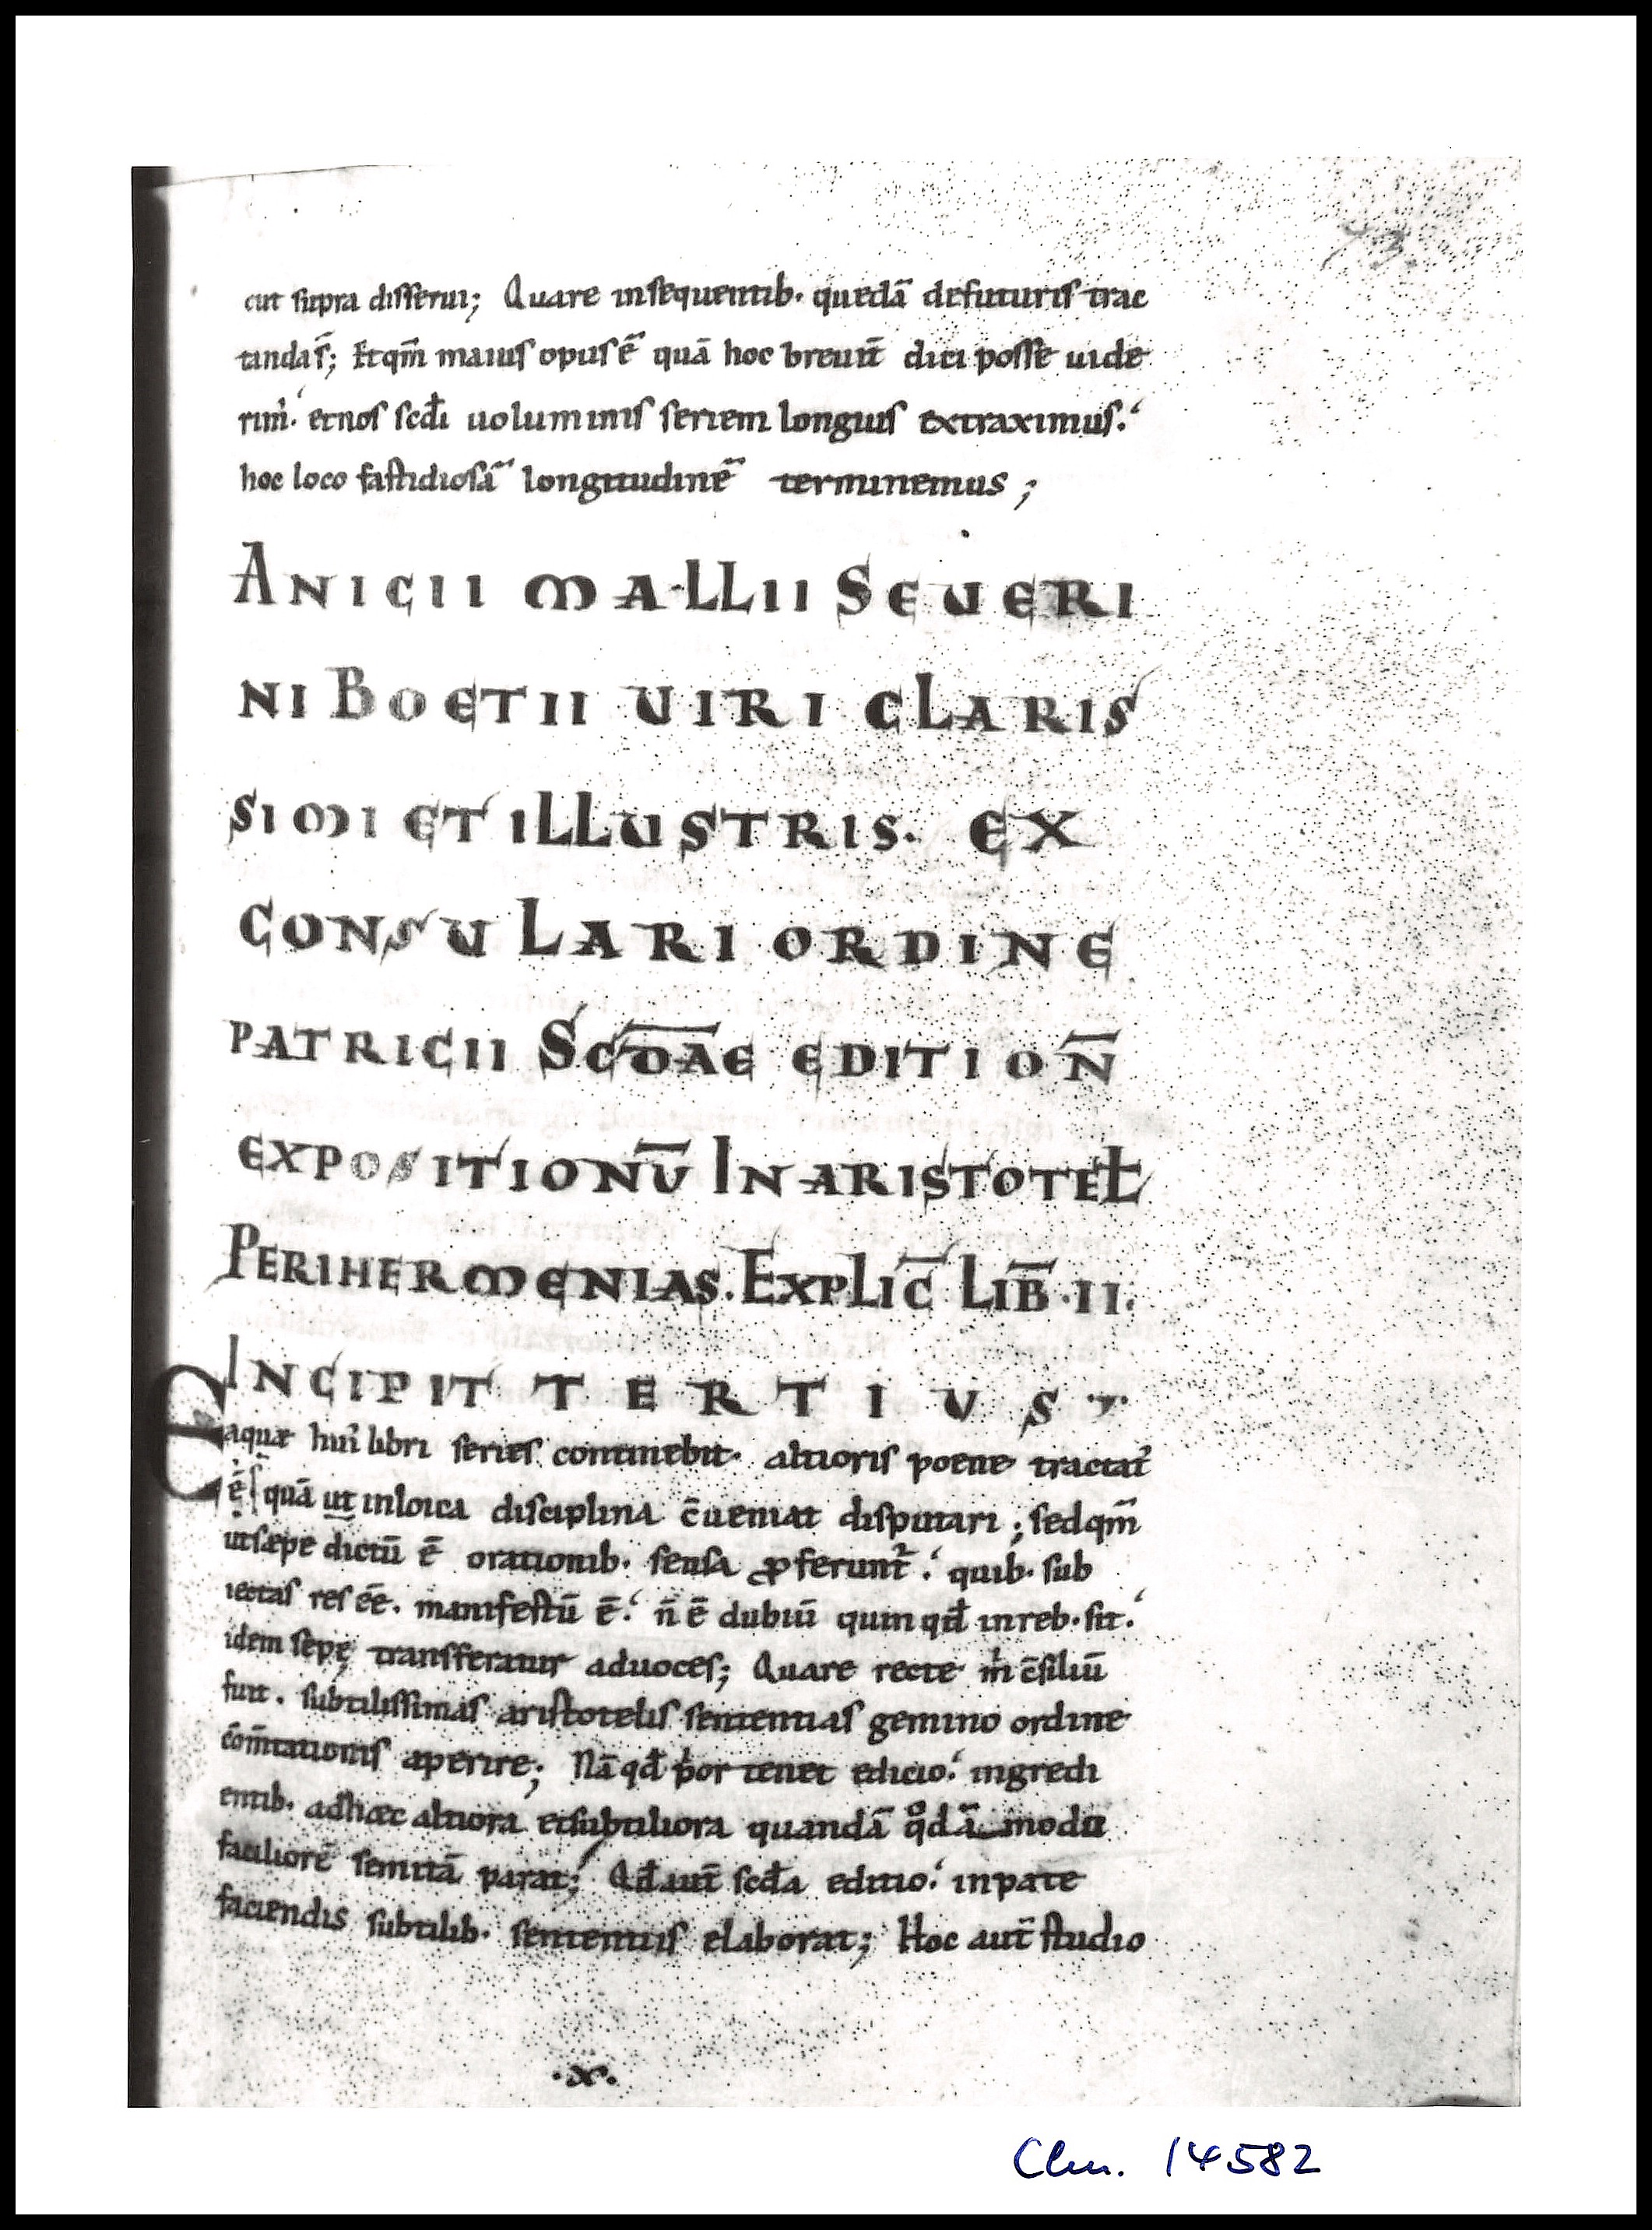 cut supra disserui; Quare insequentib· quedā defuturis trac
tandas̄; Et qm̄ maius opus ē quā hoc breuit̄ dici posse uide
rim᷒· et nos scđi uoluminis seriem longius extraximus·
hoc loco fastidiosā longitudinē terminemus;
ANICII MALLII SEUERI
NI BOETII UIRI CLARIS
SIMI ET ILLUSTRIS· EX
CONSULARI ORDINE
PATRICII SCD̄AE EDITION̄
EXPOSITIONŪ IN ARISTOTEŁ
PERIHERMENIAS. EXPLIC̄ LIB̄ ·II·
INCIPIT TERTIVS
Eaquæ hui᷒ libri series continebit· altioris poene tractat᷒
ē quā ut inloica disciplina c̄ueniat disputari; sedqm̄
utsæpe dictū ē orationib· sensa ꝓferunt᷑· quib· sub
iectas res eē· manifestū ē· n̄ ē dubiū quin qđ inreb· sit·
idem sepę transferatur aduoces; Quare recte m̄ c̄siliū
fuit· subtilissimas aristotelis sententias gemino ordine
com̄tationis aperire; Nā qđ p̍or tenet edicio· ingredi
entib· adhæc altiora etsubtiliora quandā qͦdā modo
faciliorē semitā parat; Qđ aut̄ scđa editio· inpate
faciendis subtilib· sententiis elaborat; Hoc aut̄ studio
·x·
Clm. 14582